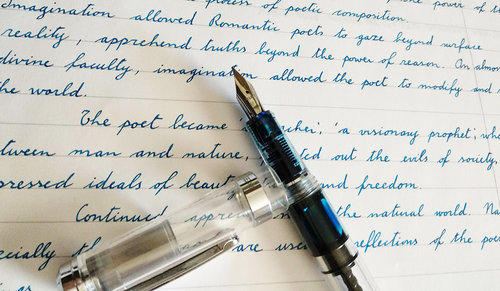 process of poetic composition. the power of
Imagination allowed Romantic poets to gaze beyond surface
reality, apprehend truths beyond the power of reason. An almos
divine faculty, imagination allowed the poet to modify and
the world.
The poet became cher', 'a visionary prophet', wh
tween man and nature, ted out the evils of society,
pressed ideals of beau and freedom.
Continued appre the natural world. Na
cially th are use reflections of the poe